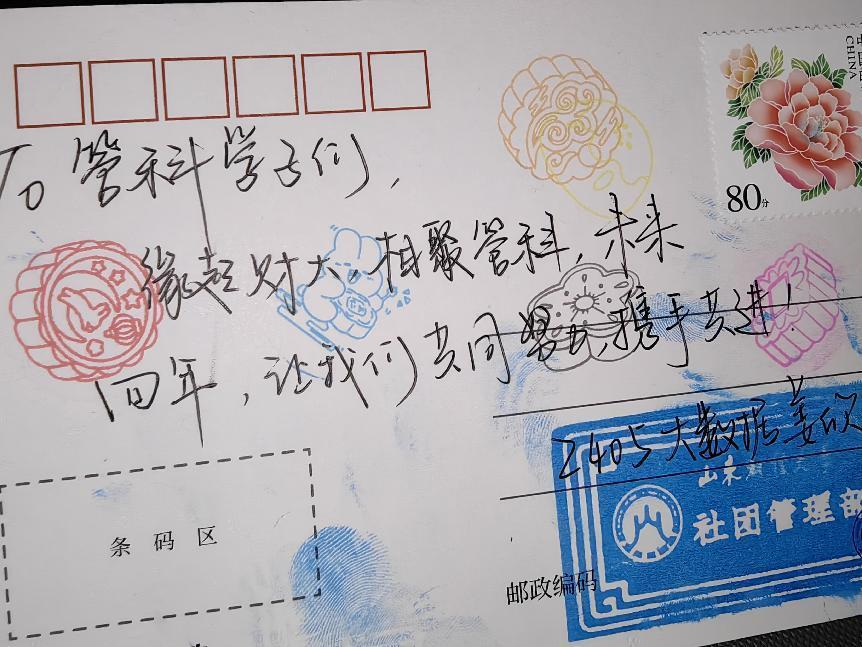 To 管科学子们，
缘起财大，相聚管科，未来
四年，让我们共同努力，携手共进！
2405大数据姜欣
山东财经大学
社团管理部
条码区
邮政编码
80分
中国邮政
CHINA